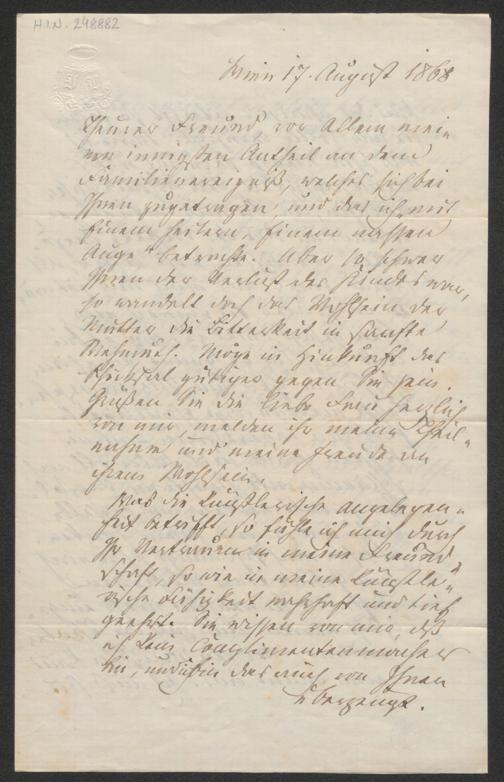 H.I.N. 248882
Wien 17. August 1868
Theurer Freund, vor Allem mei-
nen innigsten Antheil an dem
Familienereigniß, welches sich bei
Ihnen zugetragen, und das ich mit
„Einem heitern, Einem nassen
Auge“ betrachte. Aber so schwer
Ihnen der Verlust des Kindes war,
so wandelt doch das Wohlsein der
Mutter die Bitterkeit in sanfte
Wehmuth. Möge in Hinkunft das
Schicksal gütiger gegen Sie sein.
Grüßen Sie die liebe Frau herzlich
von mir, melden ihr meine Theil-
nahme und meine Freude an
ihrem Wohlsein.
Was die künstlerische Angelegen-
heit betrifft, so fühle ich mich durch
Ihr Vertrauen in meine Freund-
schaft, so wie in meine künstle-
rische Fähigkeit wahrhaft und tief
geehrt. Sie wissen von mir, daß
ich kein Complimentenmacher
bin, und ich bin das auch von Ihnen
überzeugt.